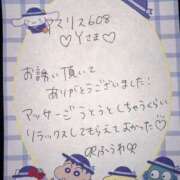 アスリス608
♡Yさま♡
お誘い頂いて
ありがとうございました!
マッサージうとうとしちゃうくらい
リラックスしてもらえてよかった♡